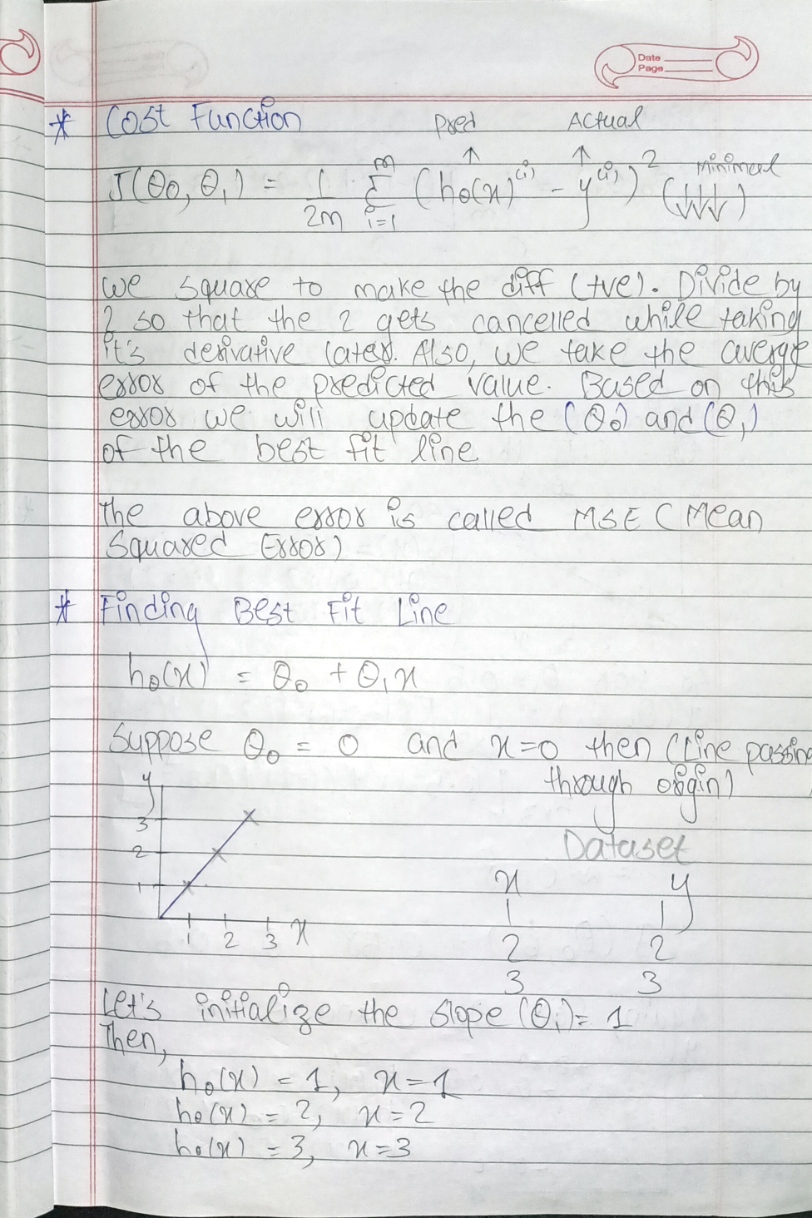 Date
Page
* Cost Function Pred Actual
J(θ0, θ1) = 1/2m Σ i=1 m (hθ(x)^(i) - y^(i))^2 (↓↓↓) Minimal
We square to make the diff (+ve). Divide by
2 so that the 2 gets cancelled while taking
it's derivative later. Also, we take the averge
error of the predicted value. Based on this
error we will update the (θ0) and (θ1)
of the best fit line
The above error is called MSE (Mean
Squared Error)
* Finding Best Fit Line
hθ(x) = θ0 + θ1x
Suppose θ0 = 0 and x=0 then (Line passing
through origin)
y
3
2
1
1 2 3 x
Dataset
x y
1 1
2 2
3 3
Let's initialize the slope (θ1) = 1
Then,
hθ(x) = 1, x=1
hθ(x) = 2, x=2
hθ(x) = 3, x=3